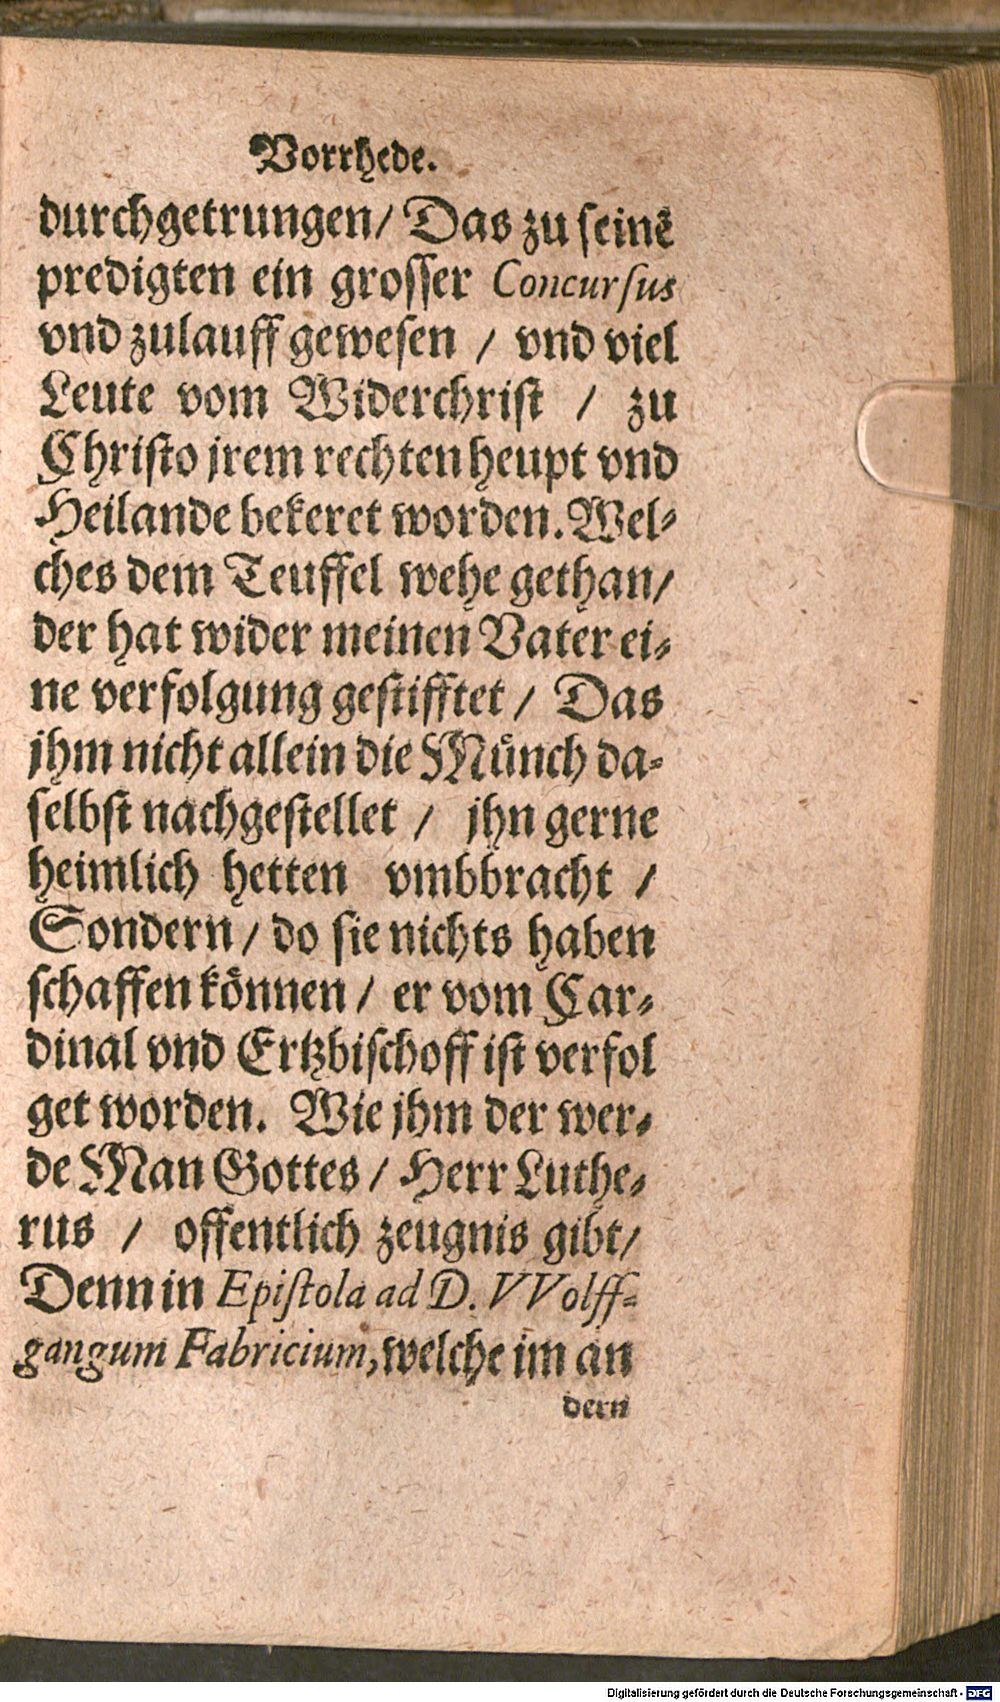 Vorrhede.
durchgetrungen/ Das zu seinē
predigten ein grosser Concursus
vnd zulauff gewesen / vnd viel
Leute vom Widerchrist / zu
Christo jrem rechten heupt vnd
Heilande bekeret worden. Wel-
ches dem Teuffel wehe gethan/
der hat wider meinen Vater ei-
ne verfolgung gestifftet / Das
jhm nicht allein die Münch da-
selbst nachgestellet / jhn gerne
heimlich hetten vmbbracht /
Sondern / do sie nichts haben
schaffen können / er vom Car-
dinal vnd Ertzbischoff ist verfol
get worden. Wie jhm der wer-
de Man Gottes / Herr Luthe-
rus / offentlich zeugnis gibt/
Denn in Epistola ad D. VVolff-
gangum Fabricium, welche im an
dern
Digitalisierung gefördert durch die Deutsche Forschungsgemeinschaft - DFG